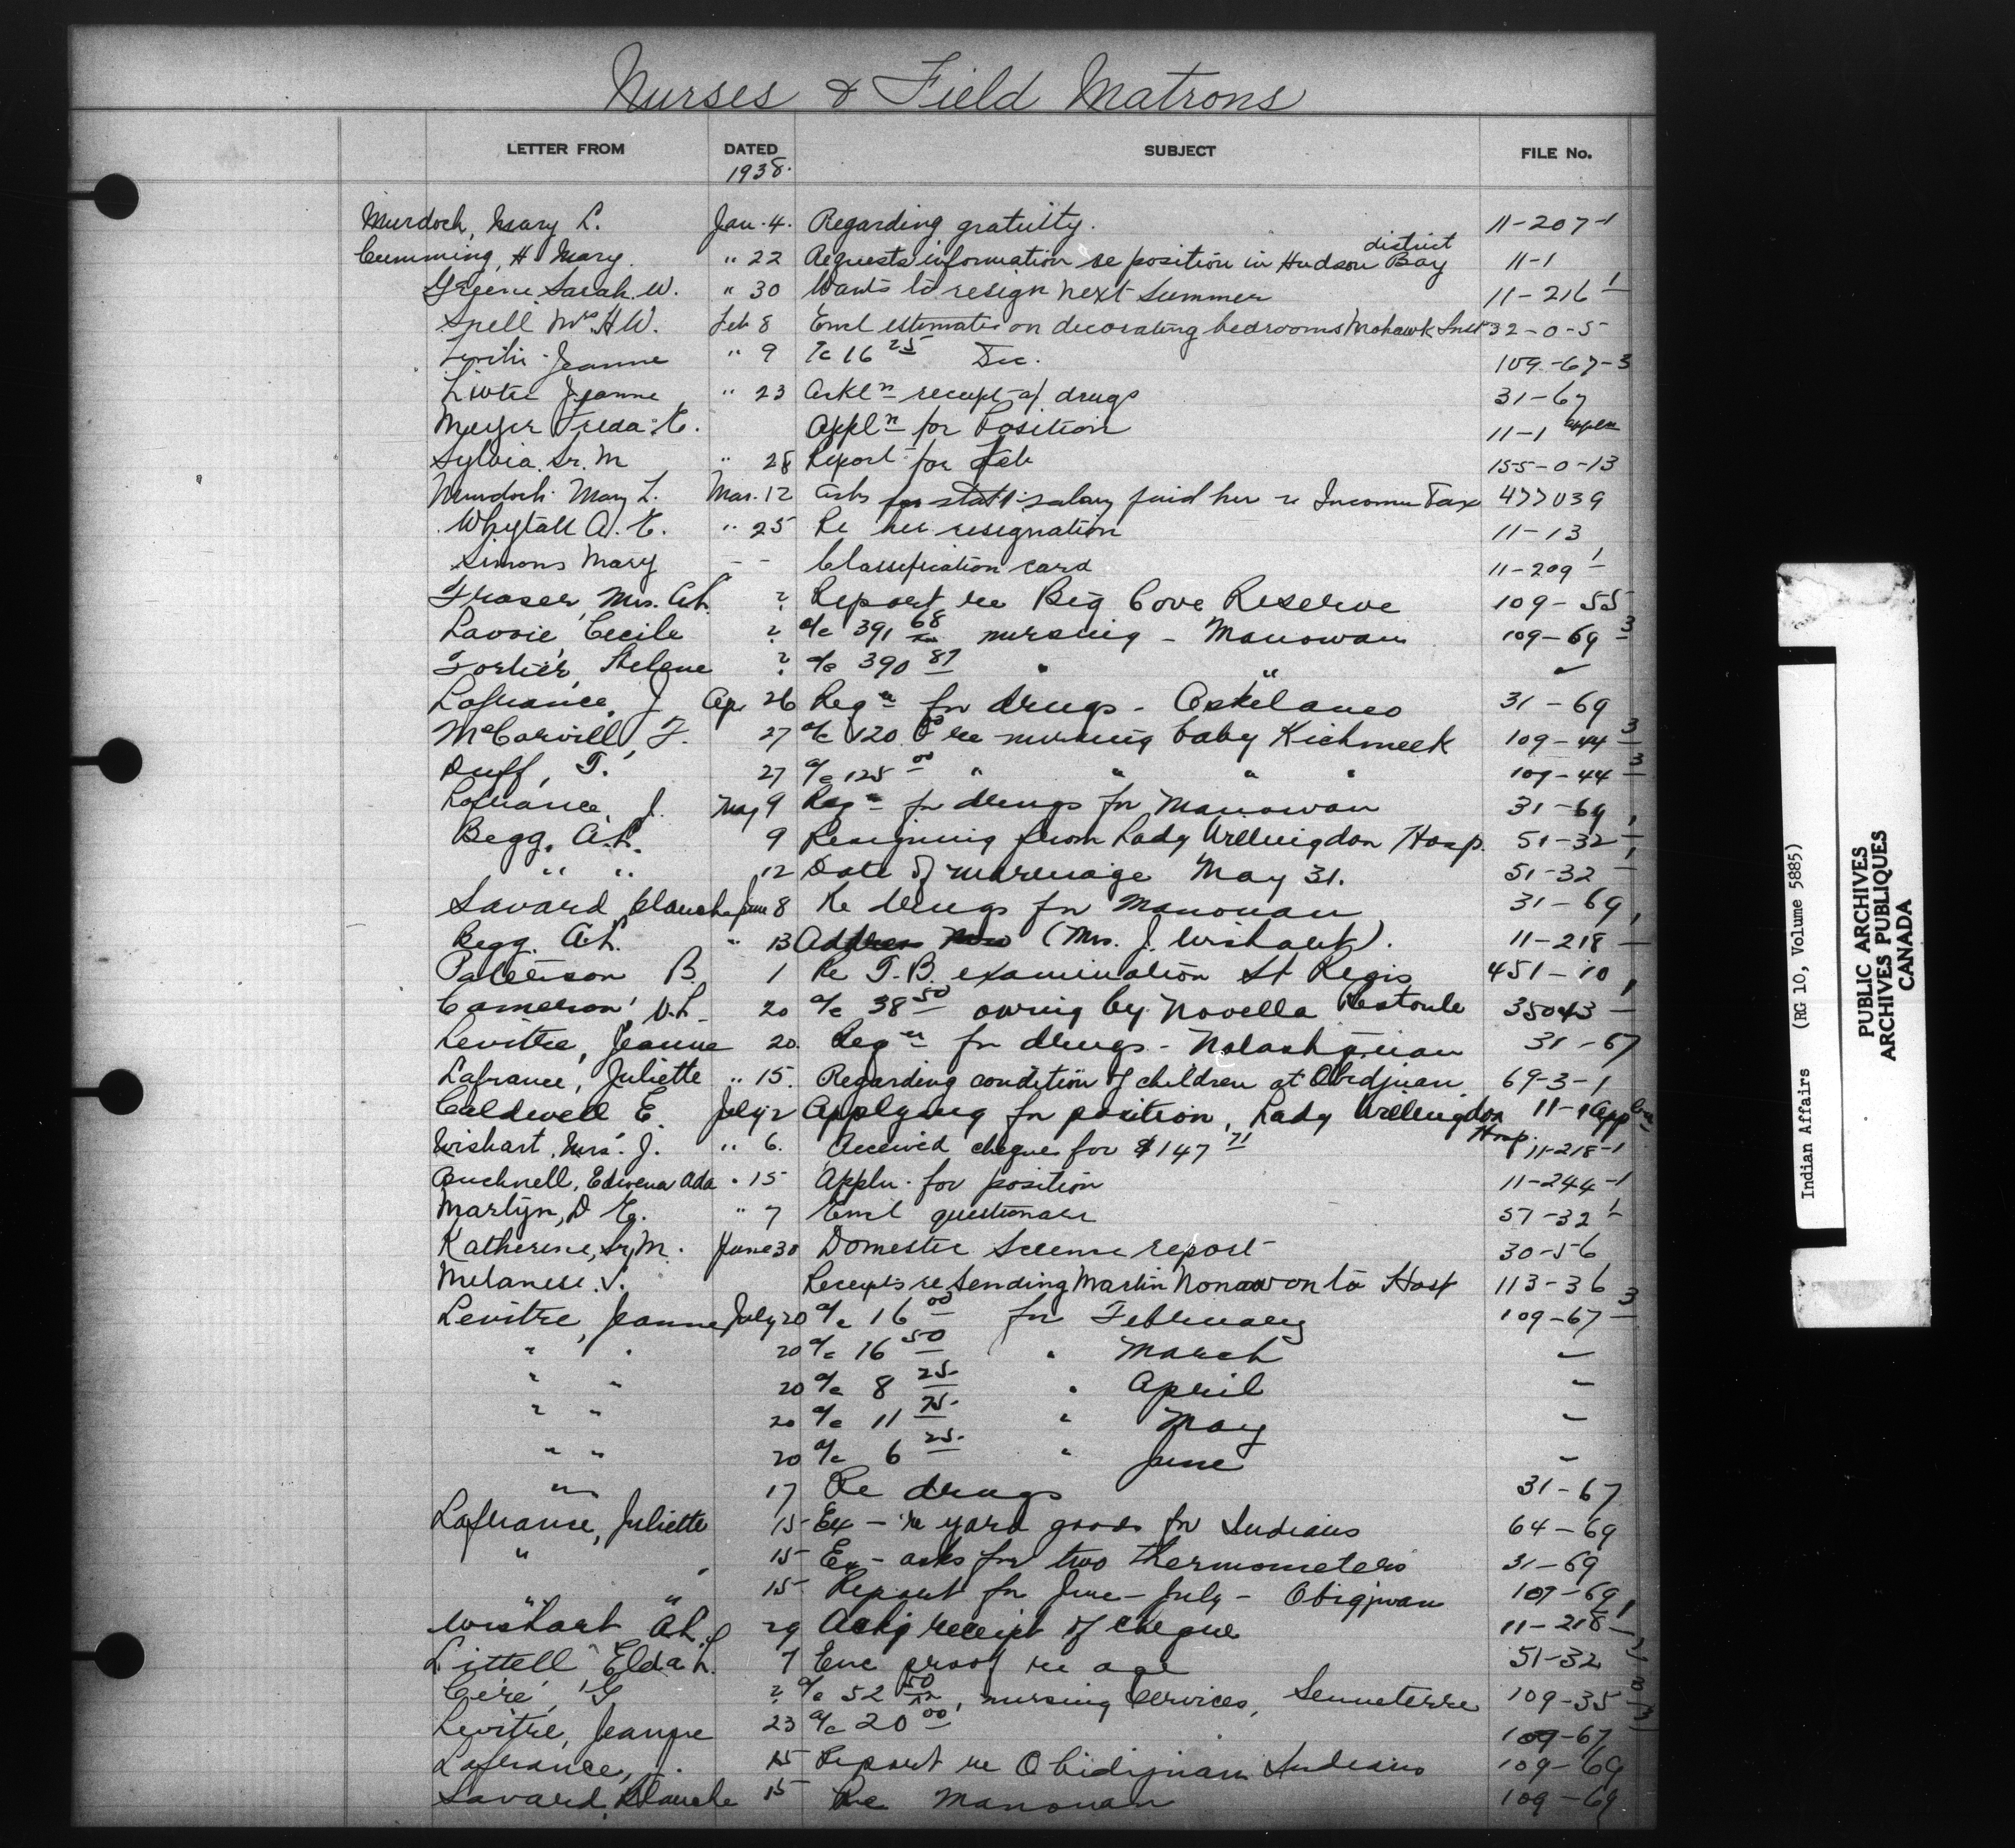 Nurses & Field Matrons
LETTER FROM DATED SUBJECT FILE No.
1938.
Murdoch, Mary L. Jan. 4. Regarding gratuity. 11-207-1
district
Cumming, H. Mary. " 22 Requests information re position in Hudson Bay 11-1
Greene Sarah W. " 30 Wants to resign next Summer 11-216-1
Snell Mrs H W. Feb 8 Encl estimates on decorating bedrooms Mohawk Inst 32-0-5
Jeanne " 9 a/c 16 25 Dec. 109-67-3
Jeanne " 23 Ackln receipt of drugs 31-67
Meyer Freda E. Appln for Position 11-1 appln
Sylvia Sr. M " 28 Report for Feb 155-0-13
Murdoch Mary L. Mar. 12 Asks for statt salary paid her re Income Tax 477039
Whytall A. E. " 25 Re her resignation 11-13
Simons Mary - - Classification card 11-209-1
Fraser, Mrs. A.L. ? Report re Big Cove Reserve 109-55
Lavoie, Cecile ? a/c 391 68 nursing - Manowan 109-69-3
Fortier, Helene ? a/c 390 87 " " -
Lafrance, J Ap. 26 Reqn for drugs - 31-69
McCarvill, F. 27 a/c 120 00 re nursing baby Kichmeek 109-44-3
Duff, T. 27 a/c 125 00 " " " " 109-44-3
Lafrance, J. May 9 Reqn for drugs for Manowan 31-69
Begg, A.L. 9 Resigning from Lady Willingdon Hosp. 51-32-1
" " 12 Date of marriage May 31. 51-32-1
Savard, Blanche June 8 Re drugs for Manouan 31-69
Begg. A.L. " 13 Address now (Mrs. J. Wishart). 11-218-1
Patterson B. 1 Re T.B. examination St Regis 451-10
Cameron, D.L. 20 a/c 38 50 owing by Novella Restoule 35043-1
Levitre, Jeanne 20. Reqn for drugs - Natashquan 31-67
Lafrance, Juliette " 15. Regarding condition of children at Obidjuan 69-3-1
Caldwell E. July 2 Applying for position, Lady Willingdon 11-1 Appln
Hosp.
Wishart, Mrs. J. " 6. Received cheque for $147 71 11-218-1
Edwena Ada " 15 Appln. for position 11-244-1
Martyn, D E. " 7 Encl questionair 57-32-1
Katherine, Sr, M. June 30 Domestic Science report 30-56
Melanese. S. Receipts re sending Martin Nonawon to Hosp 113-36
Levitre, Jeanne July 20 a/c 16 00 for February 109-67-3
" " 20 a/c 16 50 " March -
" " 20 a/c 8 25 " April -
" " 20 a/c 11 75 " May -
" " 20 a/c 6 25 " June -
" 17 Re drugs 31-67
Lafrance, Juliette 15 Ex - re yard goods for Indians 64-69
" " 15 Ex - asks for two thermometers 31-69
" " 15 Report for June - July - Obigjwan 107-69
Wishart A.L. 29 Ackg receipt of cheque 11-218-1
Littell Elda L. 7 Enc proof re age 51-32
Cere, G ? a/c 52 50, nursing services, Senneterre 109-35-3
Levitre, Jeanne 23 a/c 20 00 109-67-3
Lafrance, J. 15 Report re Obidijuan Indians 109-69
Savard, Blanche 15 Re Manouan 109-69
Indian Affairs (RG 10, Volume 5885)
PUBLIC ARCHIVES
ARCHIVES PUBLIQUES
CANADA